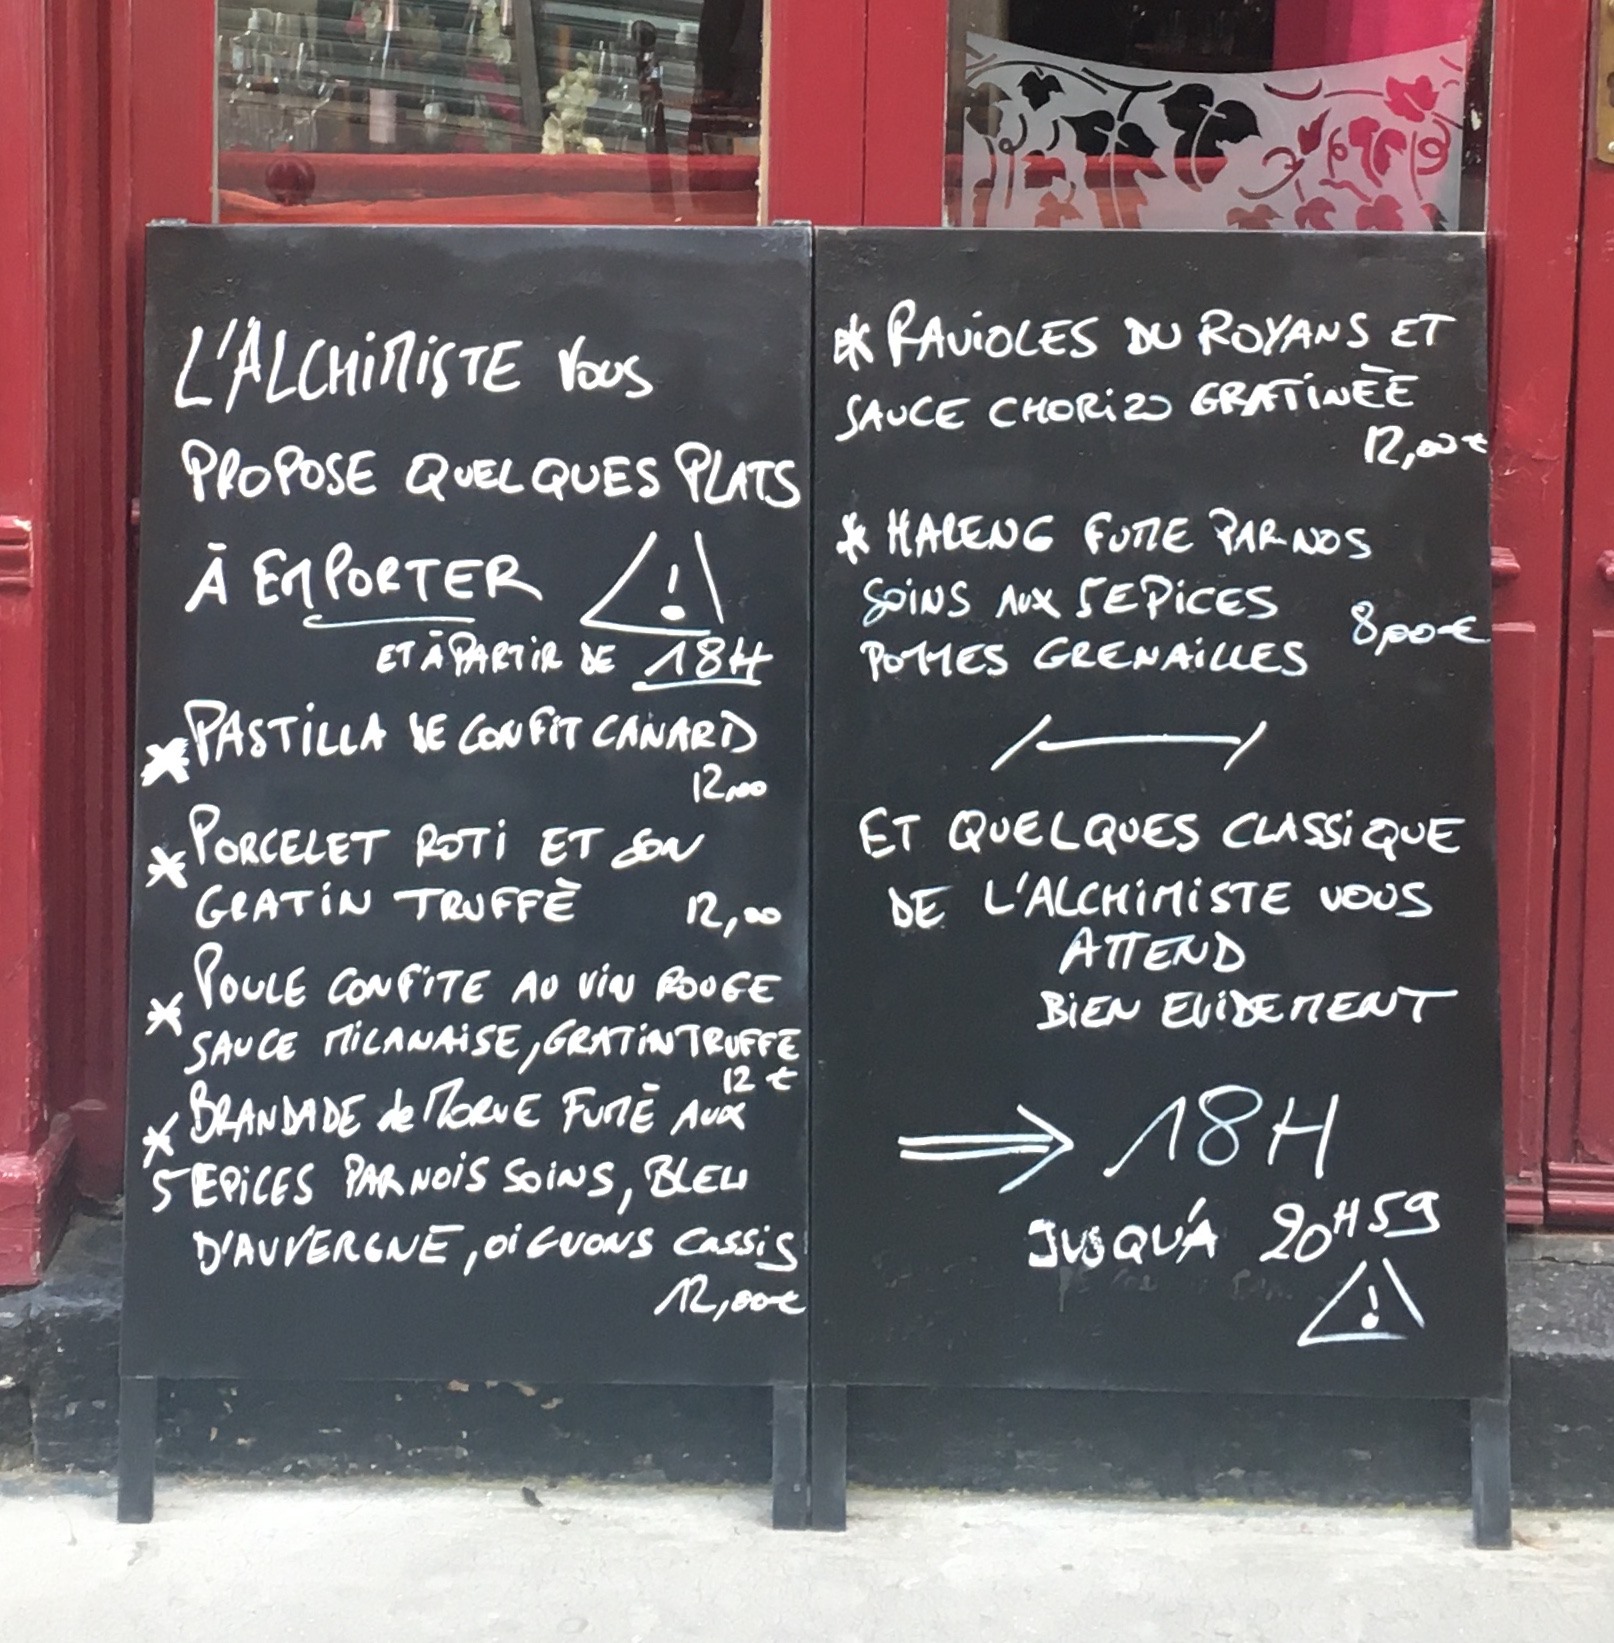 L'ALCHIMISTE VOUS
PROPOSE QUELQUES PLATS
À EMPORTER !
ET À PARTIR DE 18H
* PASTILLA DE CONFIT CANARD
12,00
* PORCELET ROTI ET SON
GRATIN TRUFFÈ 12,00
* POULE CONFITE AU VIN ROUGE
SAUCE MILANAISE, GRATIN TRUFFE
12 €
* BRANDADE de MORUE FUMÉ AUX
5 EPICES PAR NOIS SOINS, BLEU
D'AUVERGNE, OIGUONS CASSIS
12,00€
* RAVIOLES DU ROYANS ET
SAUCE CHORIZO GRATINÈE
12,00€
* HARENG FUME PAR NOS
SOINS AUX 5 EPICES 8,00€
POMMES GRENAILLES
ET QUELQUES CLASSIQUE
DE L'ALCHIMISTE VOUS
ATTEND
BIEN EVIDEMENT
⇒ 18H
JUSQU'À 20H59
!